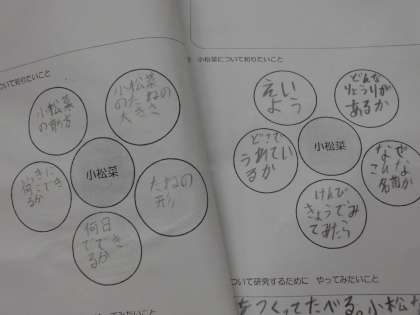 ついて知りたいこと
小松菜
の育て方
小松菜
のたねの
大きさ
小松菜
たねの
形
何日
でき
るか
小松菜について知りたいこと
えい
よう
どんな
りょうりが
あるか
どこで
うれてい
るか
小松菜
なぜ
こんな
名前か
けんび
きょうでみ
てみたら
ついて研究するために やってみたいこと
をつくってたべる。小松な
やってみたいこと